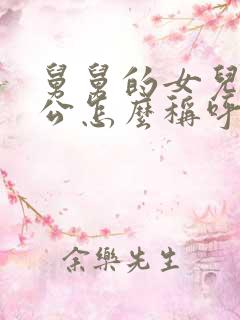 舅舅的女兒
公怎麼稱呼
余樂先生